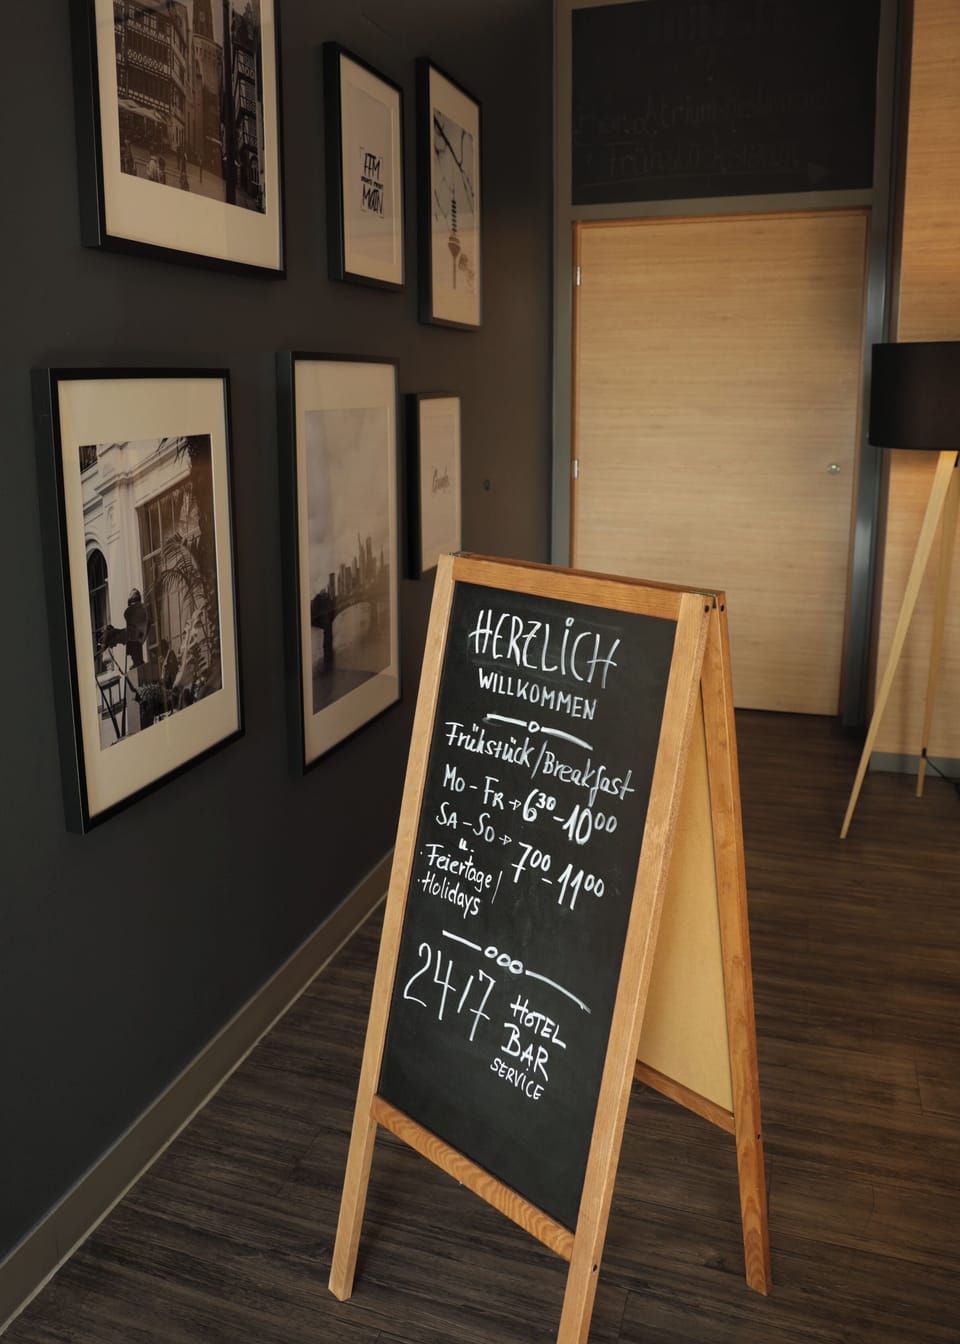 FFM
MAIN
Frühstück
HERZLICH
WILLKOMMEN
Frühstück/Breakfast
Mo - Fr → 6³⁰ - 10⁰⁰
SA - SO → 7⁰⁰ - 11⁰⁰
u.
Feiertage/
Holidays
24/7 HOTEL
BAR
SERVICE